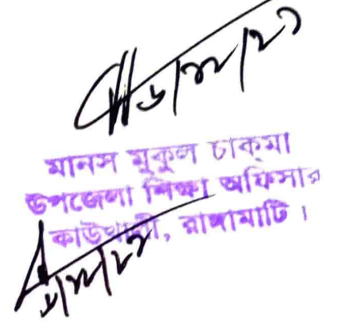 মানস মুকুল চাকমা
উপজেলা শিক্ষা অফিসার
কাউখালী, রাঙ্গামাটি।